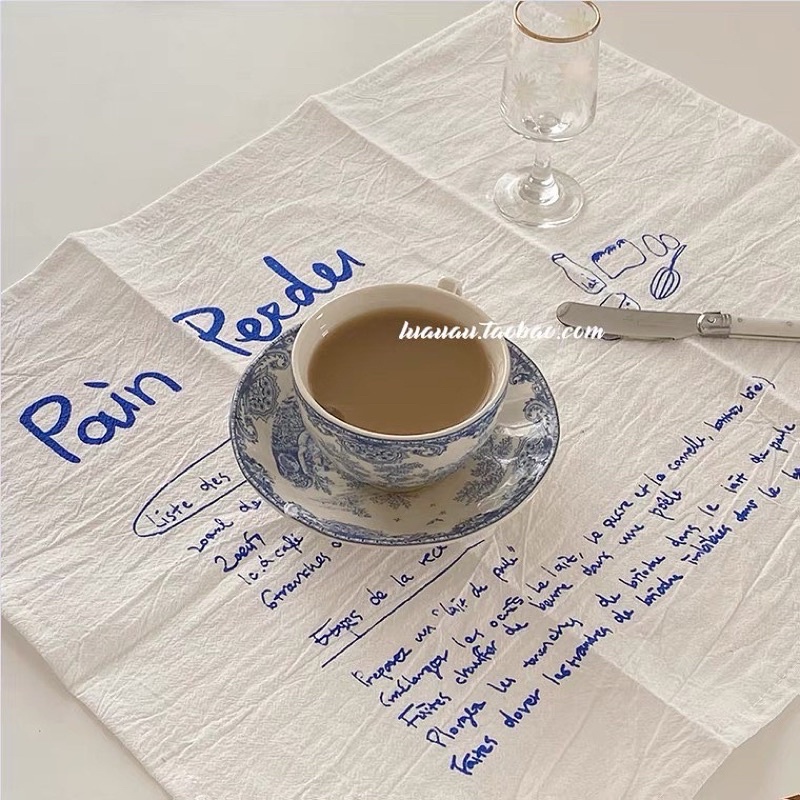 Pain Perdu
luauau.taobao.com
Liste des
200ml de
2 oeufs
1c. à café
6 tranches
Etapes de la rec
Preparez un "lait de poule"
(mélangez les oeufs, le lait, le sucre et la cannelle, battre bien)
Faites chauffer de beurre dans une poêle
Plongez les tranches de brioche dans le lait de poule
Faites dorer les tranches de brioche imbibées dans le be